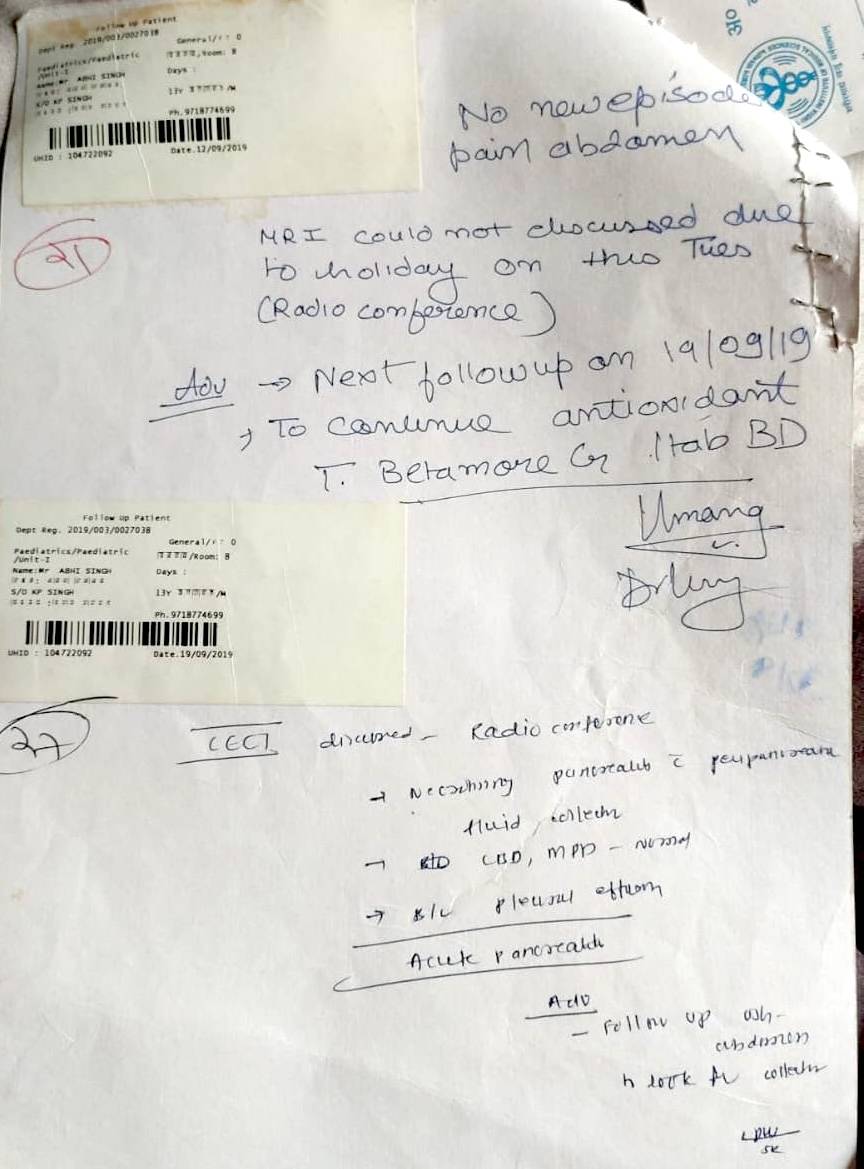 Follow Up Patient
Dept Reg. 2019/003/0027038
General/ 0
Paediatrics/Paediatric /Room: 8
/Unit-I
Days :
Name:Mr ABHI SINGH
S/O KP SINGH 13Y /M
Ph.9718774699
UHID : 104722092 Date.12/09/2019
No new episode
pain abdomen
21
MRI could not discussed due
to holiday on this Tues
(Radio conference)
Adv → Next followup on 19/09/19
→ To continue antioxidant
T. Betamore G 1tab BD
Umang
Follow Up Patient
Dept Reg. 2019/003/0027038
General/ 0
Paediatrics/Paediatric /Room: 8
/Unit-I
Name:Mr ABHI SINGH Days :
S/O KP SINGH 13Y /M
Ph.9718774699
UHID : 104722092 Date.19/09/2019
27
CECT discussed - Radio conference
→ Necrotizing pancreatitis c̄ peripancreatic
fluid collectn
→ CBD, MPD - normal
→ B/L pleural effusion
Acute pancreatitis
Adv
- Follow up
abdomen
to look for collectn
SR